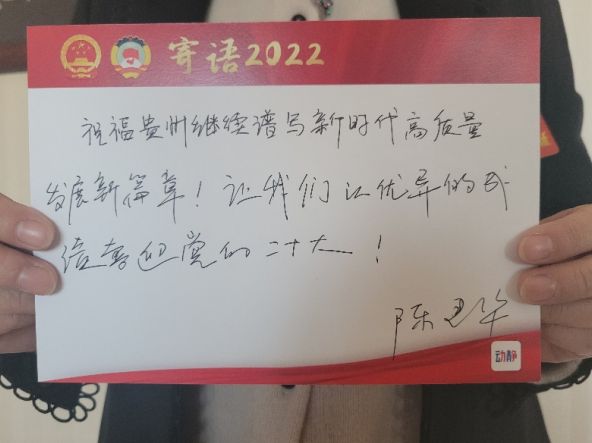 寄语2022
祝福贵州继续谱写新时代高质量
发展新篇章！让我们以优异的成
绩喜迎党的二十大！
陈思华
动静